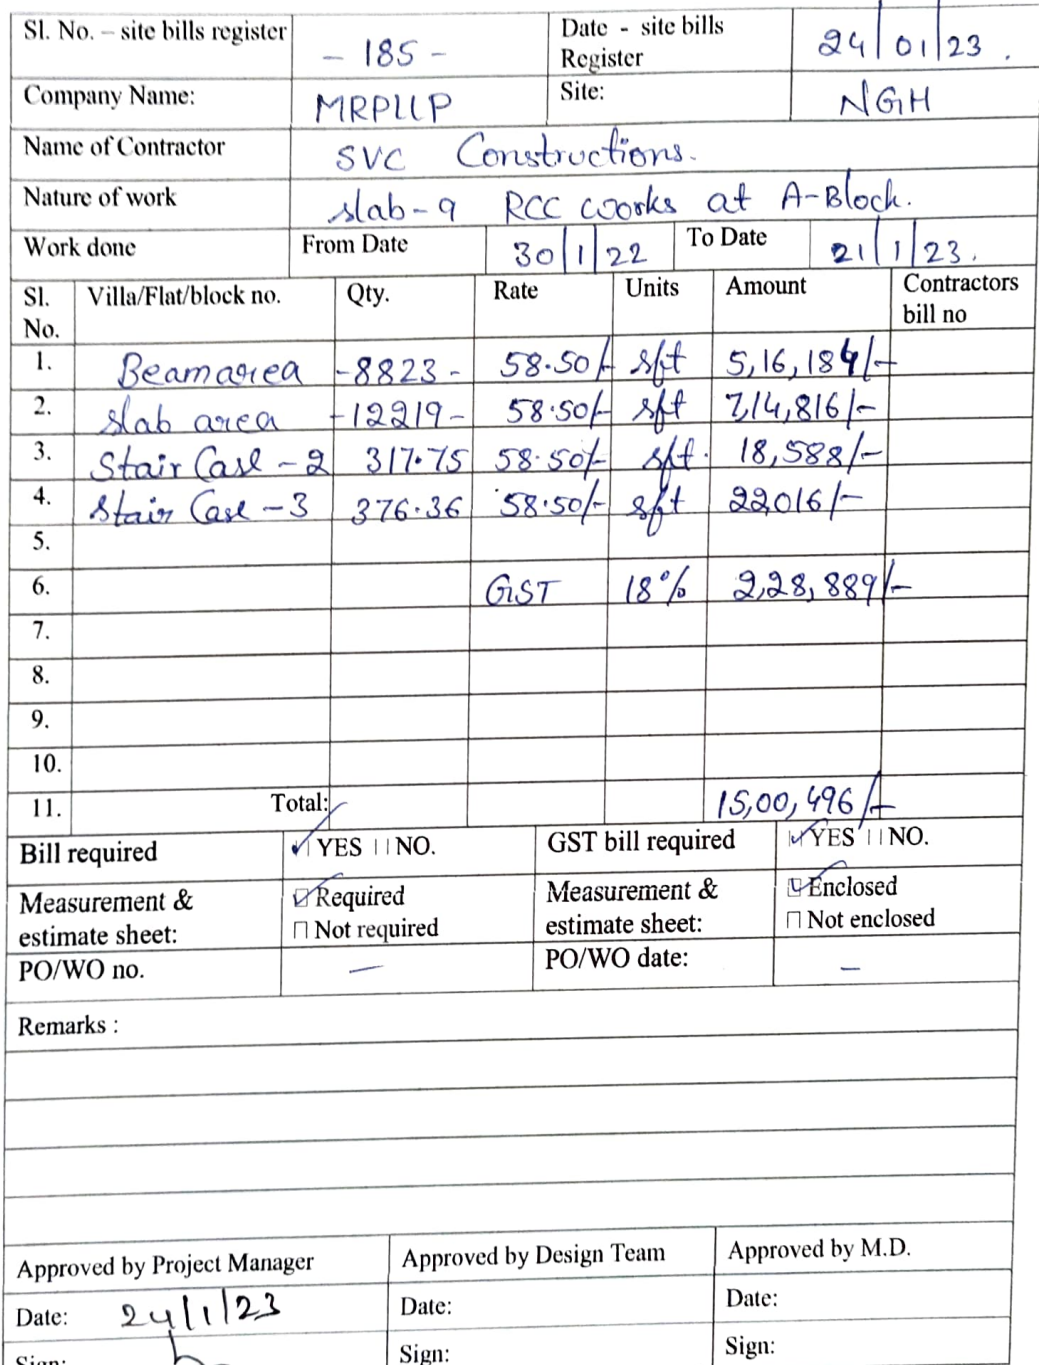 Sl. No. – site bills register - 185 - Date - site bills Register 24/01/23.
Company Name: MRPLLP Site: NGH
Name of Contractor SVC Constructions.
Nature of work slab-9 RCC works at A-Block.
Work done From Date 30/1/22 To Date 21/1/23.
Sl. No. Villa/Flat/block no. Qty. Rate Units Amount Contractors bill no
1. Beamarea -8823- 58.50/- sft 5,16,184/-
2. slab area -12219- 58.50/- sft 7,14,816/-
3. Stair Case -2 317.75 58.50/- sft. 18,588/-
4. Stair Case -3 376.36 58.50/- sft 22016/-
5.
6. GST 18% 2,28,889/-
7.
8.
9.
10.
11. Total: 15,00,496/-
Bill required YES NO. GST bill required YES NO.
Measurement & estimate sheet: Required Not required Measurement & estimate sheet: Enclosed Not enclosed
PO/WO no. — PO/WO date: —
Remarks :
Approved by Project Manager Approved by Design Team Approved by M.D.
Date: 24/1/23 Date: Date:
Sign: Sign: Sign: